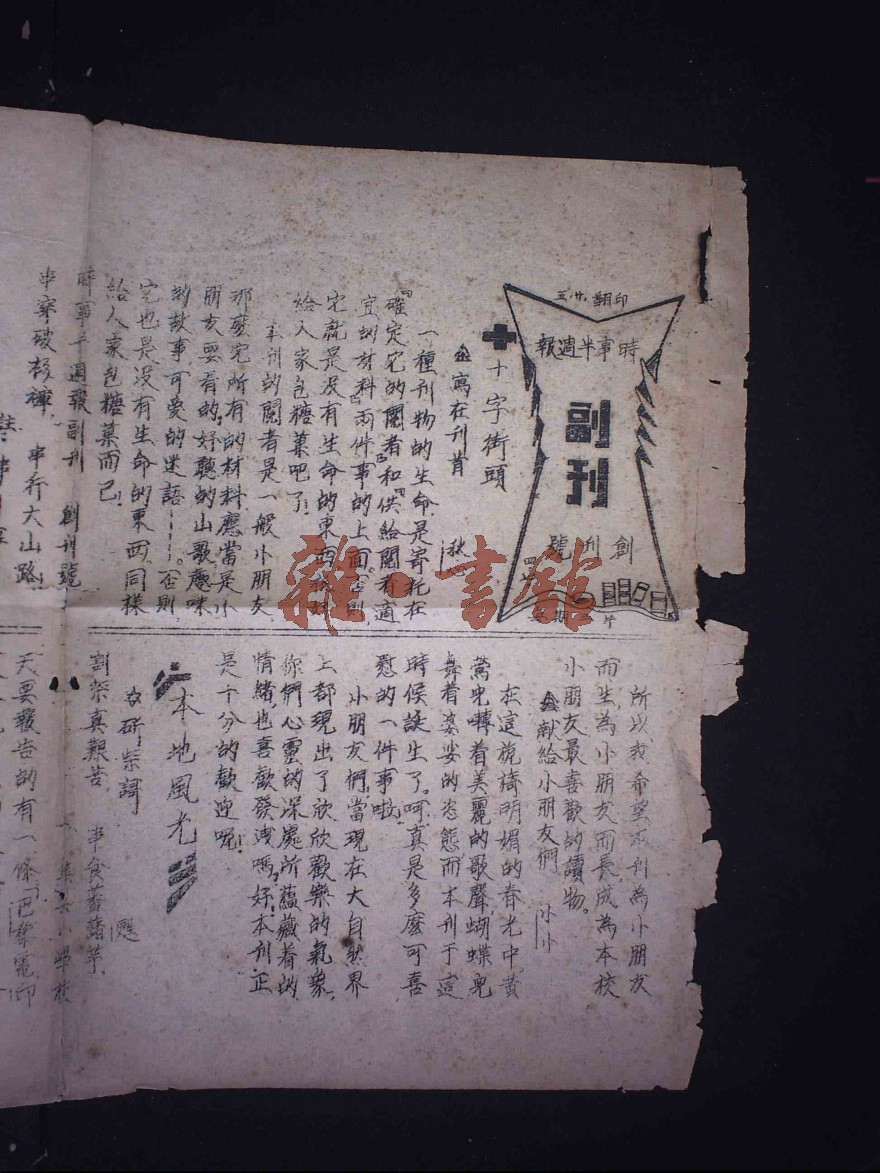 時事半週報
副刊
創刊號
十字街頭
寫在刊首
一種刊物的生命是寄托在
「確定它的閱者」和「供給閱者適
宜的材料」兩件事的上面。否則,
它就是没有生命的東西
給人家包糖菓吧了!
本刊的閱者是一般小朋友,
那麼它所有的材料應當是小
朋友要看的,好聽的山歌,趣味
的故事可愛的迷語……。否則,
它也是没有生命的東西,同樣
給人家包糖菓而已!
時事半週報副刊 創刊號
串行大山路
所以我希望本刊為小朋友
而生,為小朋友而長,成為本校
小朋友最喜歡的讀物。
献給小朋友們
在這旖旎明媚的春光中,黄
鶯兒囀着美麗的歌聲,蝴蝶兒
舞着婆娑的恣態,而本刊于這
時候誕生了。呵!真是多麼可喜
慰的一件事啦!
小朋友們,當現在大自然界
上都現出了欣欣歡樂的氣象,
你們心靈的深處所蘊藏着的
情緒,也喜歡發洩嗎?好!本刊正
是十分的歡迎呢!
本地風光
斫柴謌
割柴真艱苦, 串食蕃藷芋,
天要報告的有一條「巴黎電印